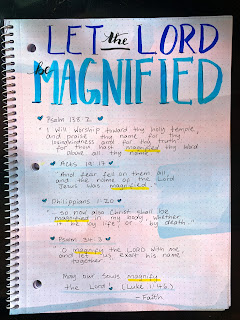 LET the LORD
be
MAGNIFIED
Psalm 138:2
"I will worship toward thy holy temple,
and praise thy name for thy
lovingkindness and for thy truth
for thou hast magnified thy word
above all thy name."
Acts 19:17
"... And fear fell on them all,
and the name of the Lord
Jesus was magnified."
Philippians 1:20
"... so now also Christ shall be
magnified in my body, whether
it be by life, or by death."
Psalm 34:3
"O magnify the LORD with me,
and let us exalt his name
together."
May our souls magnify
the Lord! (Luke 1:46)
- Faith